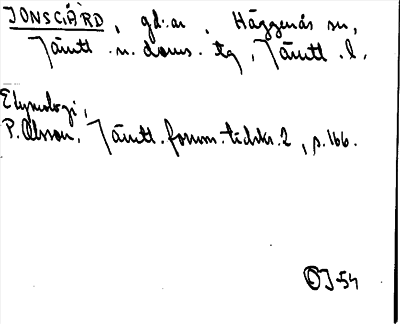 JONSGÅRD, gd:ar, Häggenås sn,
Jämtl. n. doms. tg, Jämtl. l.
Etymologi,
P. Olsson, Jämtl. fornm. tidskr. 2, s. 166.
OJ 54